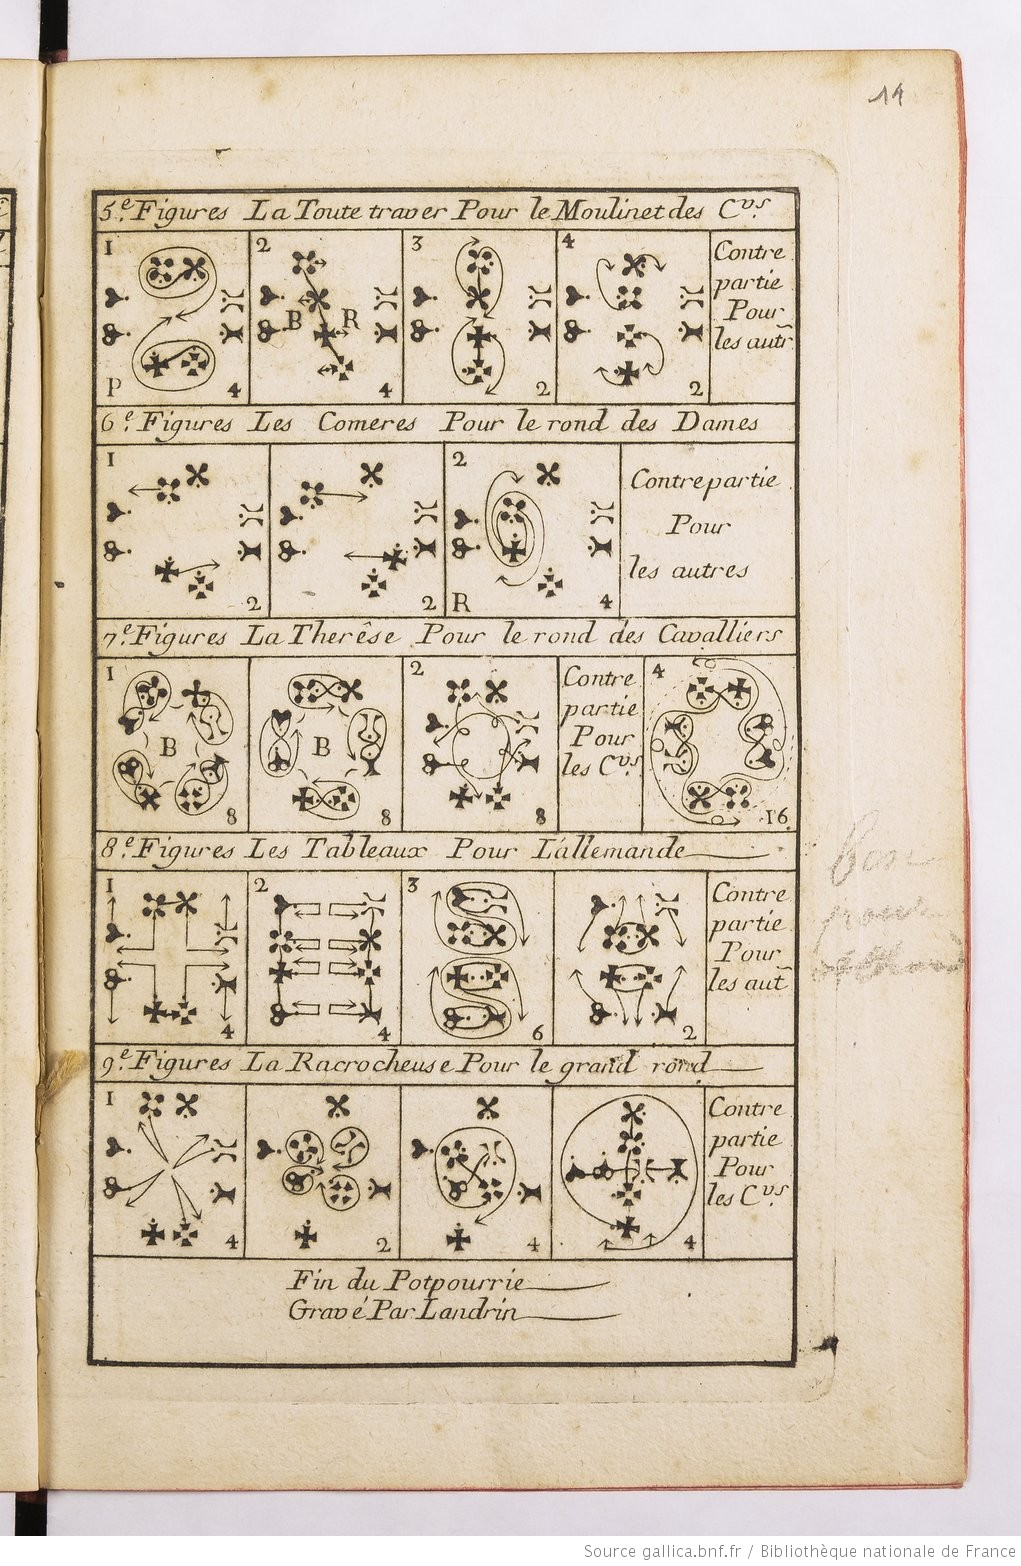 14
5.e Figures La Toute traver Pour le Moulinet des C.vs
1 2 3 4
Contre
partie
Pour
les autr̃
B R
P 4 4 2 2
6.e Figures Les Comeres Pour le rond des Dames
1 2
Contrepartie
Pour
les autres
2 2 R 4
7.e Figures La Therêse Pour le rond des Cavalliers
1 2 4
Contre
partie
Pour
les C.vs
B B
8 8 8 16
8.e Figures Les Tableaux Pour L'allemande
1 2 3
Contre
partie
Pour
les aut̃
4 4 6 2
Bon
pour
9.e Figures La Racrocheuse Pour le grand rond
1
Contre
partie
Pour
les C.vs
4 2 4 4
Fin du Potpourrie
Gravé Par Landrin
Source gallica.bnf.fr / Bibliothèque nationale de France